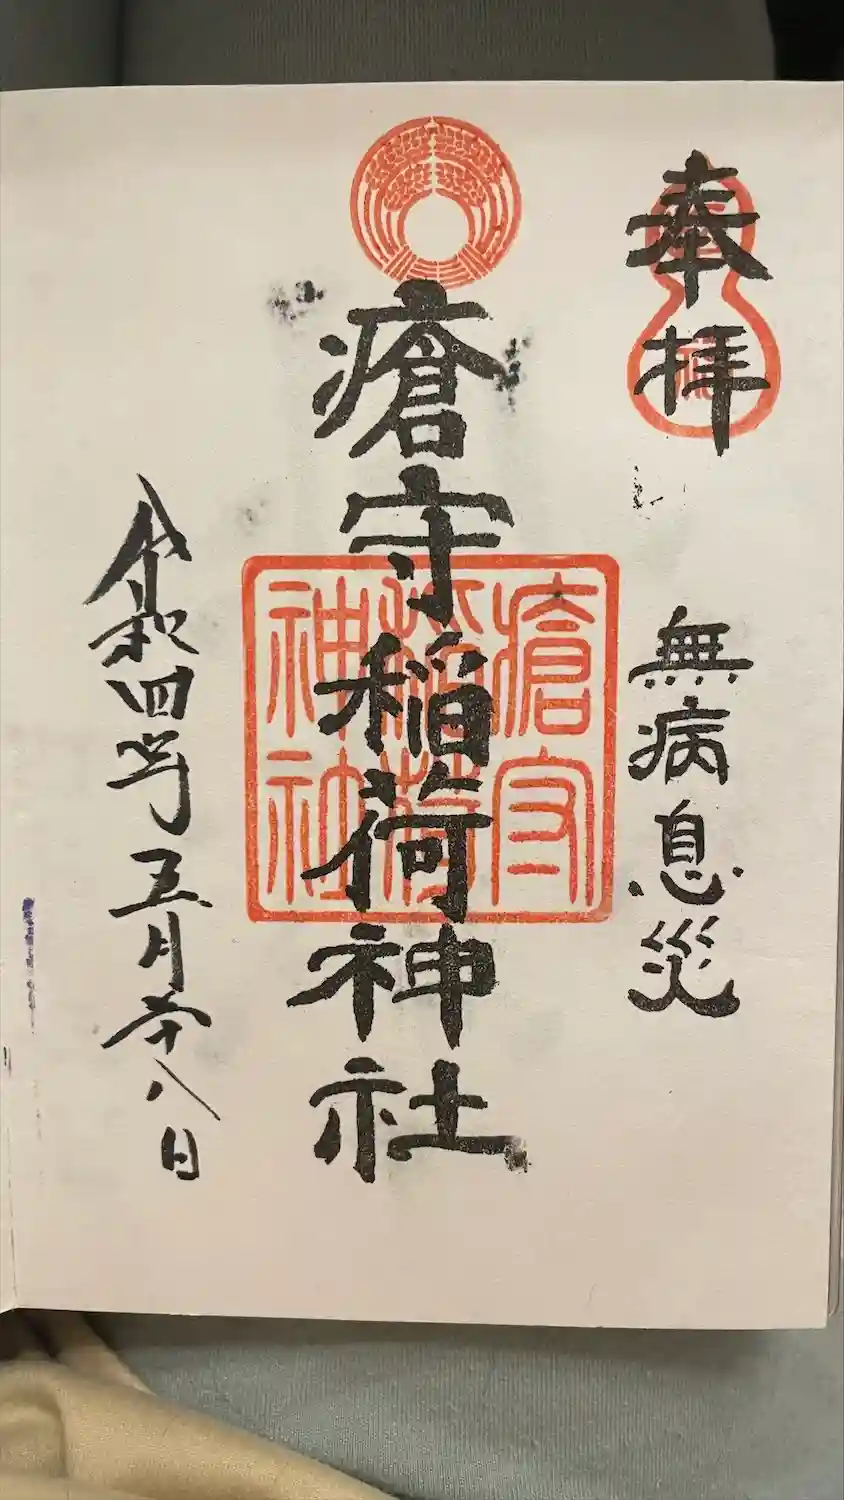 奉拝
無病息災
瘡守稲荷神社
瘡守
稲荷
神社
令和四年五月廿八日